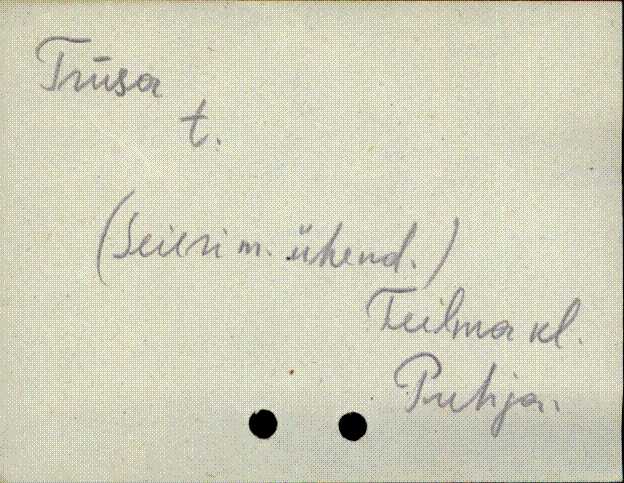 Trūsa
t.
(Seieri m. ühend.)
Teilma kl.
Puhja.